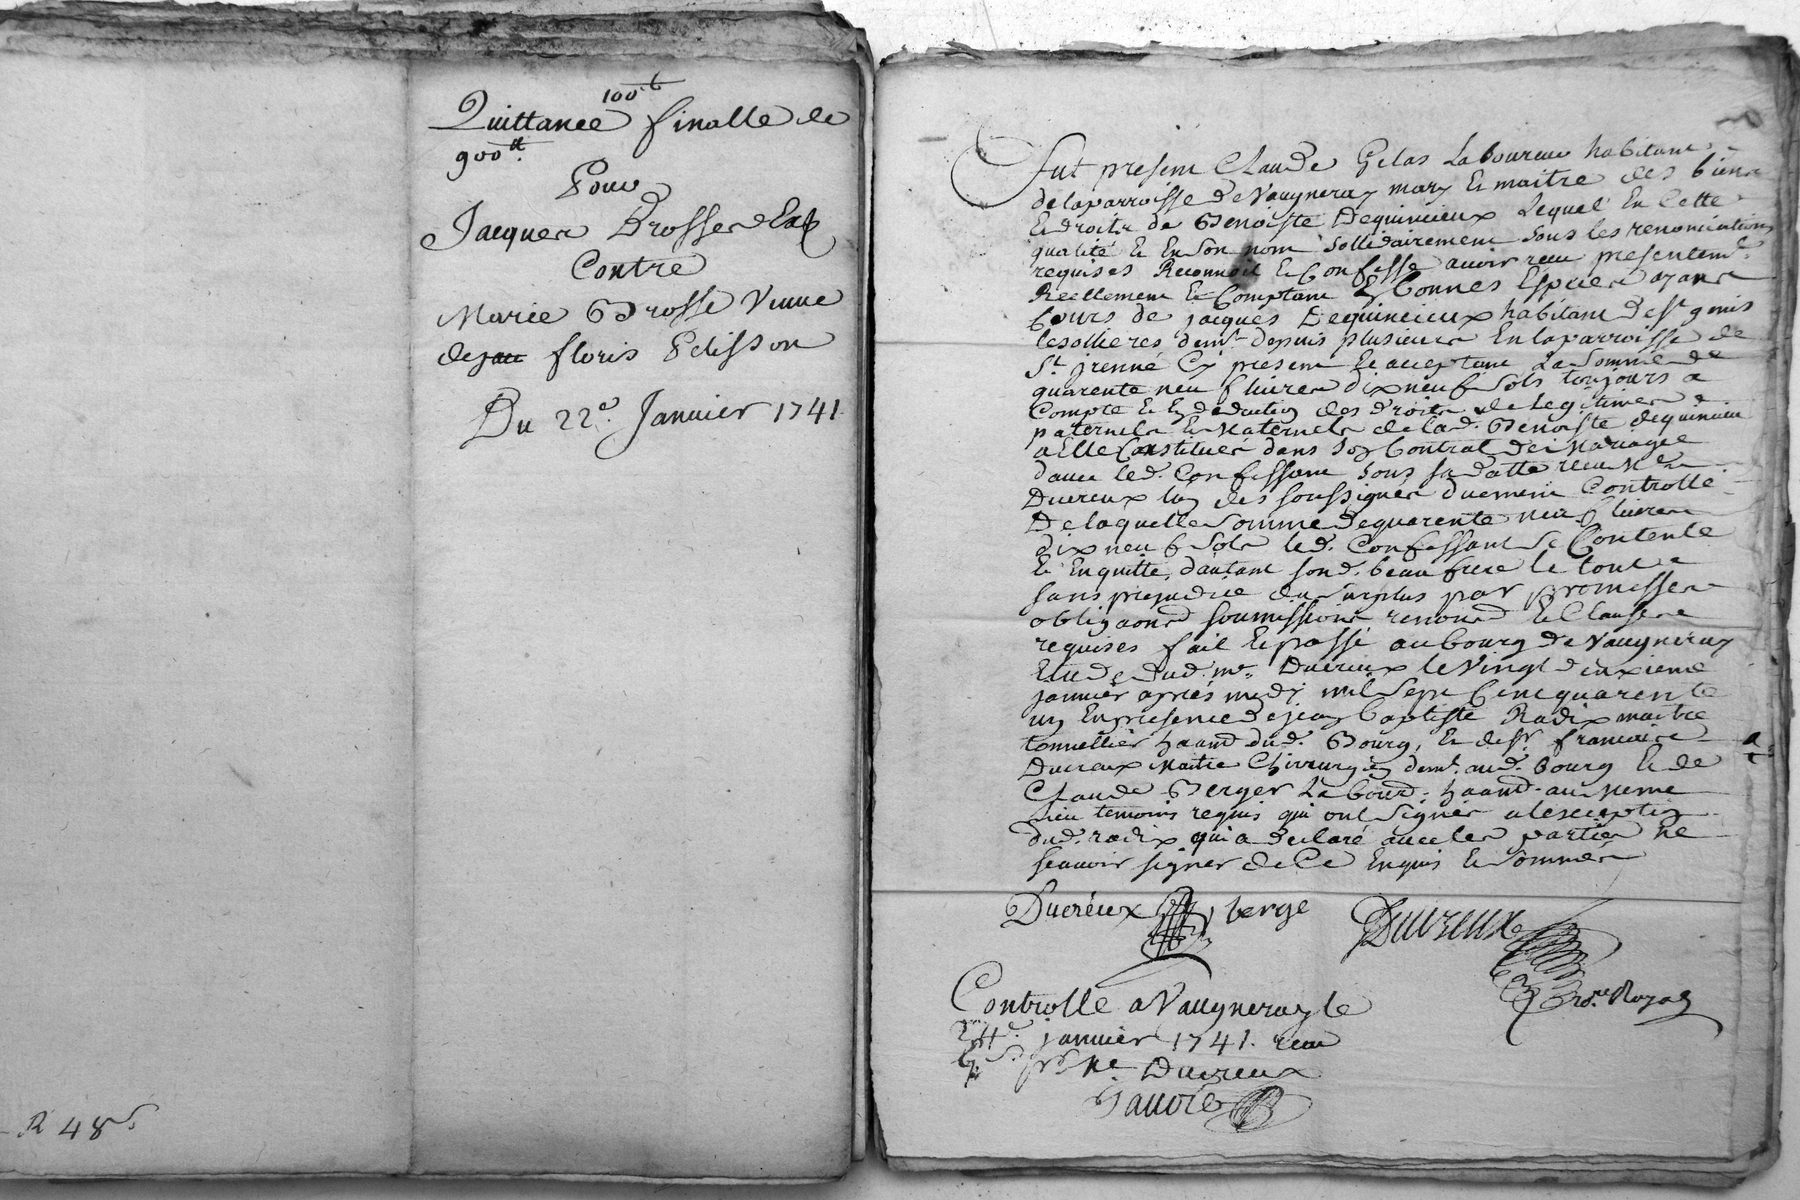 100 ᵗᵗ
Quittance finalle de
900 ᵗᵗ.
Pour
Jacques Brosse &
Contre
Marie Brosse Veuve
de floris Pelisson
Du 22e. Janvier 1741
R 48 s
Fut present Claude Gelas Laboureur habitant
de la parroisse de Vaugneray mary & maitre des biens
& droits de Benoiste Dequincieux Lequel En Cette
qualité & En Son nom Sollidairement Sous les renonciations
requises Reconnoit & Confesse avoir receu presentemt.
Reellement & Comptant En bonnes Especes ayant
Cours de jacques Dequincieux habitant de st. genis
lesollieres demt. depuis plusieurs En la parroisse de
St. jrenné Cy present & acceptant La Somme de
quarente neuf livres dix neuf Sols toujours a
Compte & En deduction des droits de Legitimes
paternels & Maternels de lad. Benoiste dequincieux
a Elle Constitués dans Son Contrat de Mariage
davec led. Confessant Sous sa datte receu Me.
Ducreux lun des soussignés duement Controllé
De laquelle Somme de quarente neuf livres
dix neuf Sols led. Confessant Se Contente
& En quitte, dautant sond. beau frere le tout
sans prejudice du Surplus par promesses
obligaons Soumissions renonc & Clauses
requises fait & passé au bourg de Vaugneray
Etude dud. me. Ducreux le Vingt deuxieme
janvier apres mydy mil Sept Cent quarente
un En presence de jean baptiste Radix maitre
tonnellier haant dud. Bourg, & de sr. francois
Ducreux Maitre Chirurgien demt. aud. bourg & de
Claude Berger Labour. haant au meme
lieu temoins requis qui ont Signés a lexception
dud. radix qui a declaré avec les parties ne
scavoir signer de Ce Enquis & Sommés
Ducreux berge Ducreux
no.re Royal
Controllé a Vaugneray le
janvier 1741. receu
Me Ducreux